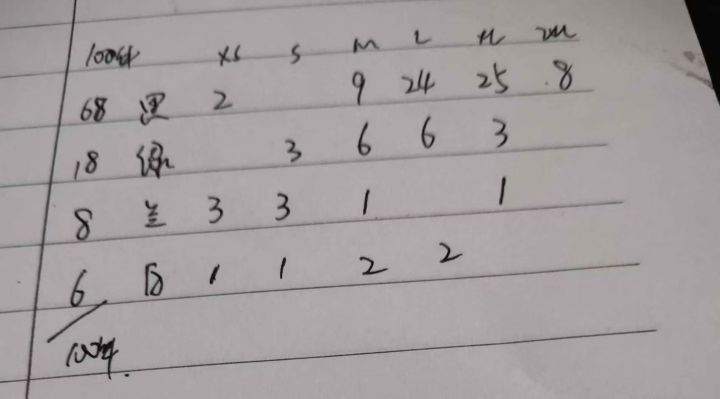 100件 XS S M L XL 2XL
68 黑 2 9 24 25 8
18 绿 3 6 6 3
8 兰 3 3 1 1
6 白 1 1 2 2
100件.